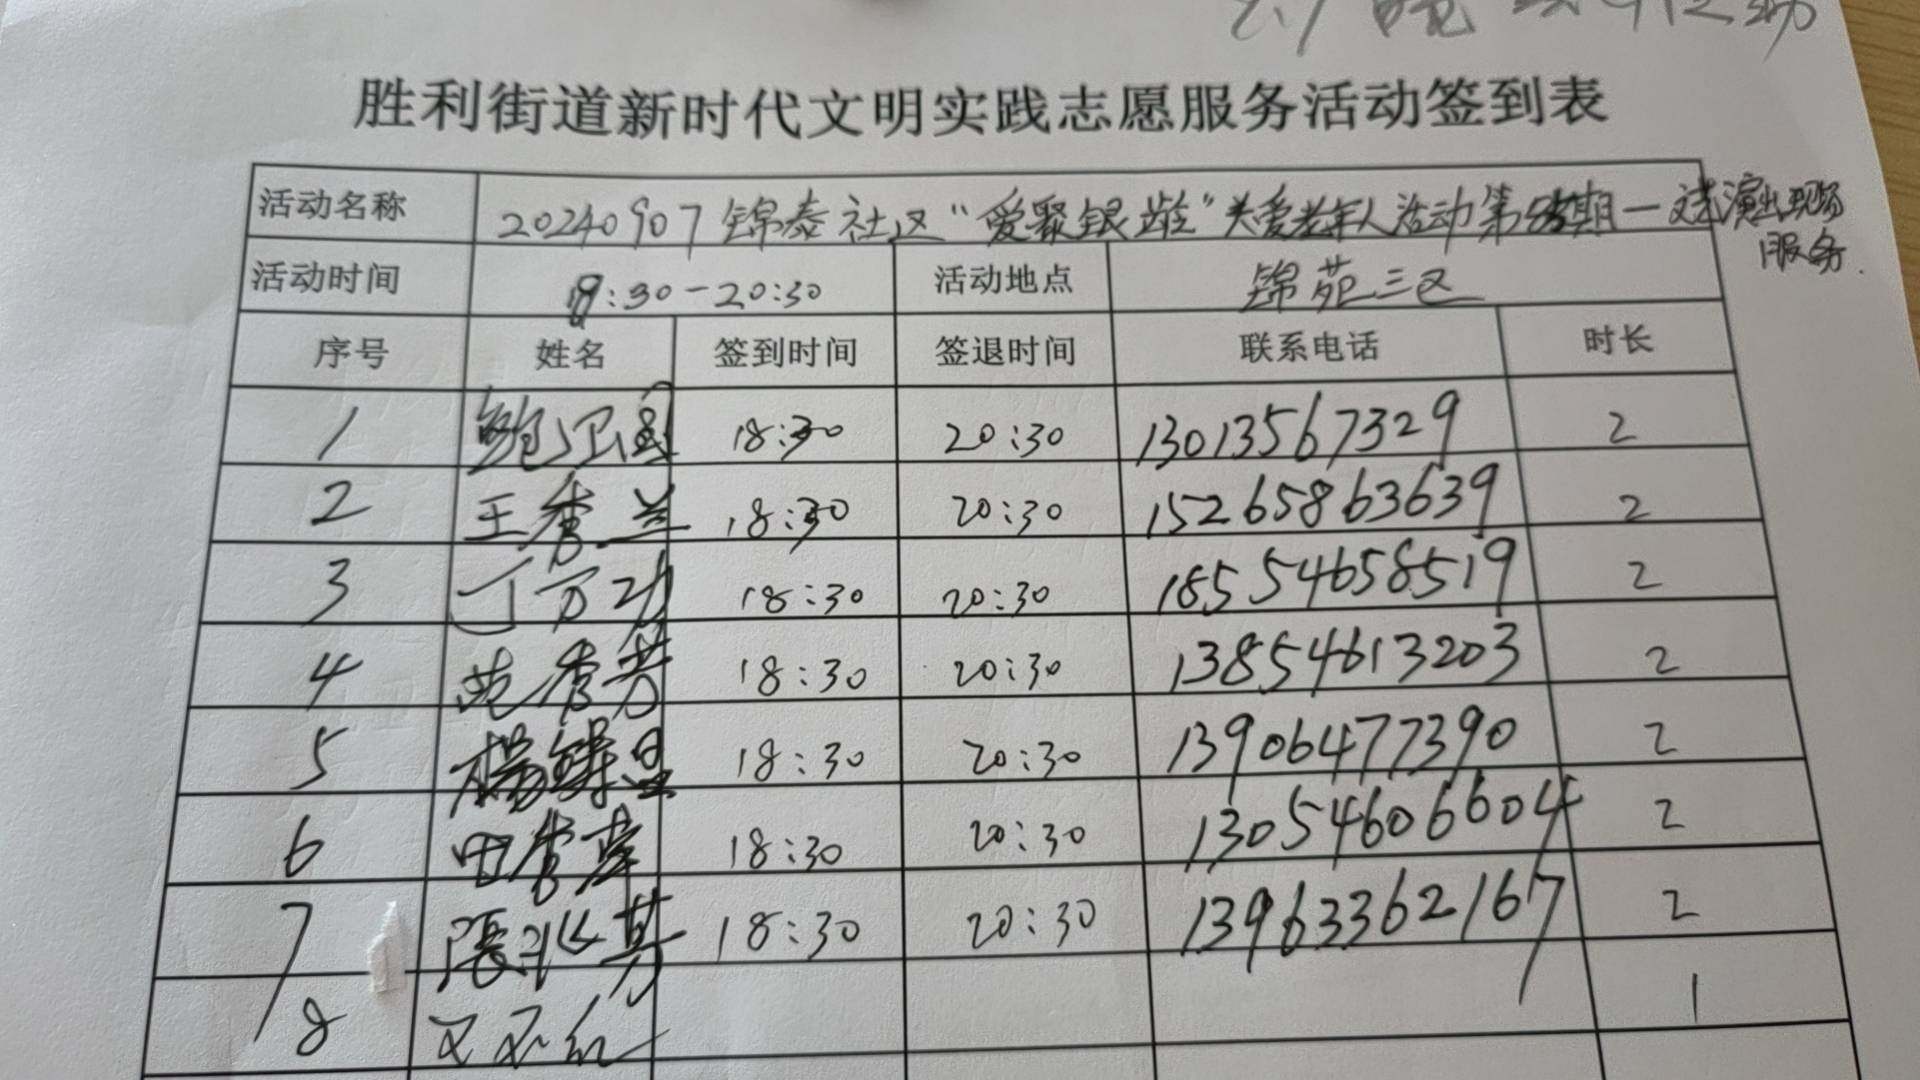 胜利街道新时代文明实践志愿服务活动签到表
活动名称 20240907锦泰社区“爱聚银龄”关爱老年人活动第期—文艺演出现场
服务
活动时间 18:30-20:30 活动地点 锦苑三区
序号 姓名 签到时间 签退时间 联系电话 时长
1 鲍卫国 18:30 20:30 13013567329 2
2 王秀兰 18:30 20:30 15265863639 2
3 丁万功 18:30 20:30 18554658519 2
4 范秀芳 18:30 20:30 13854613203 2
5 杨 18:30 20:30 13906477390 2
6 田秀 18:30 20:30 13054606604 2
7 張 18:30 20:30 13963362167 2
8 1